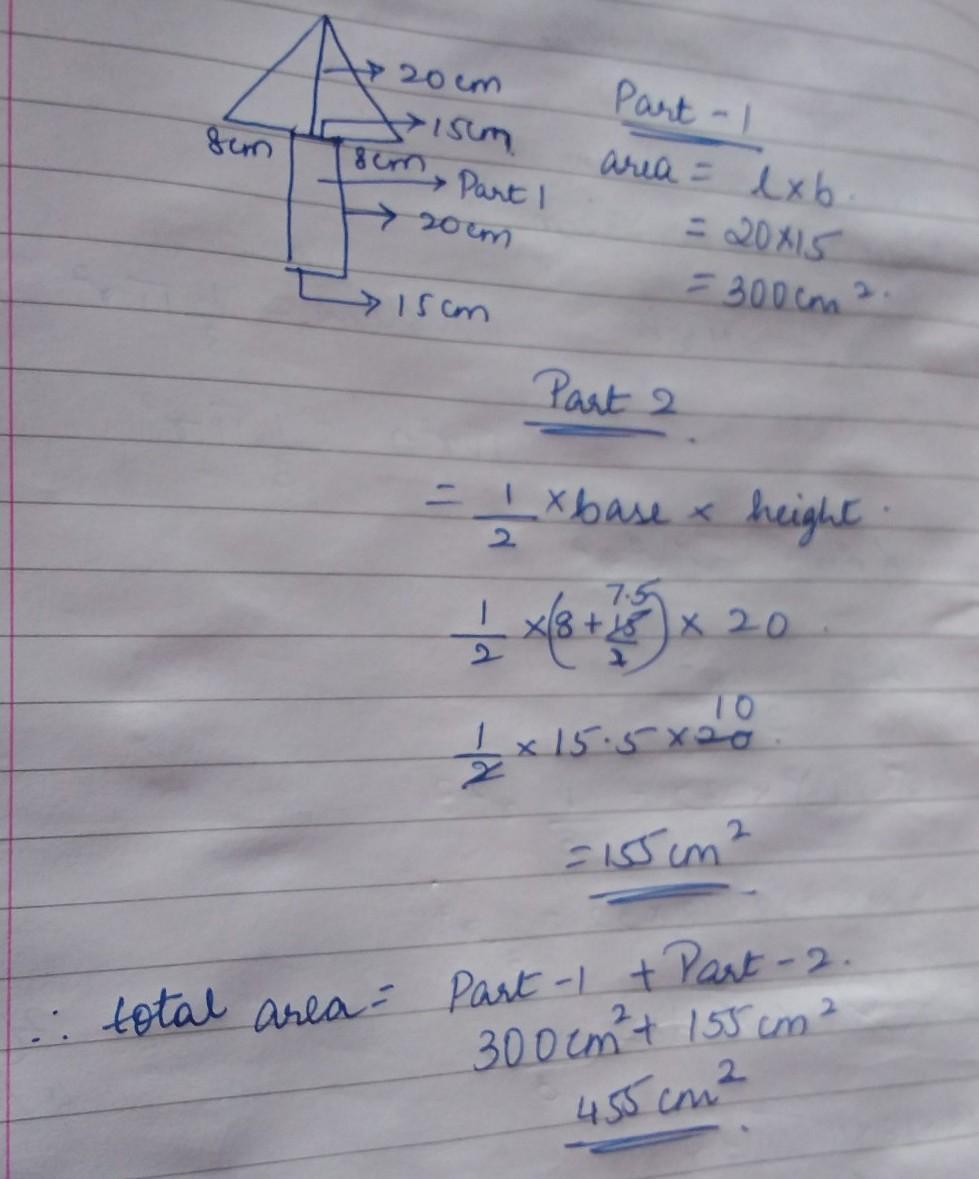 20cm
15cm
8cm
8cm
Part 1
20cm
15cm
Part - 1
area = l×b.
= 20×15
= 300cm².
Part 2
= 1/2 × base × height.
1/2 × (8 + 15/2 7.5) × 20
1/2 × 15.5 × 20 10
= 155cm²
∴ total area = Part-1 + Part-2.
300cm² + 155cm²
455cm²